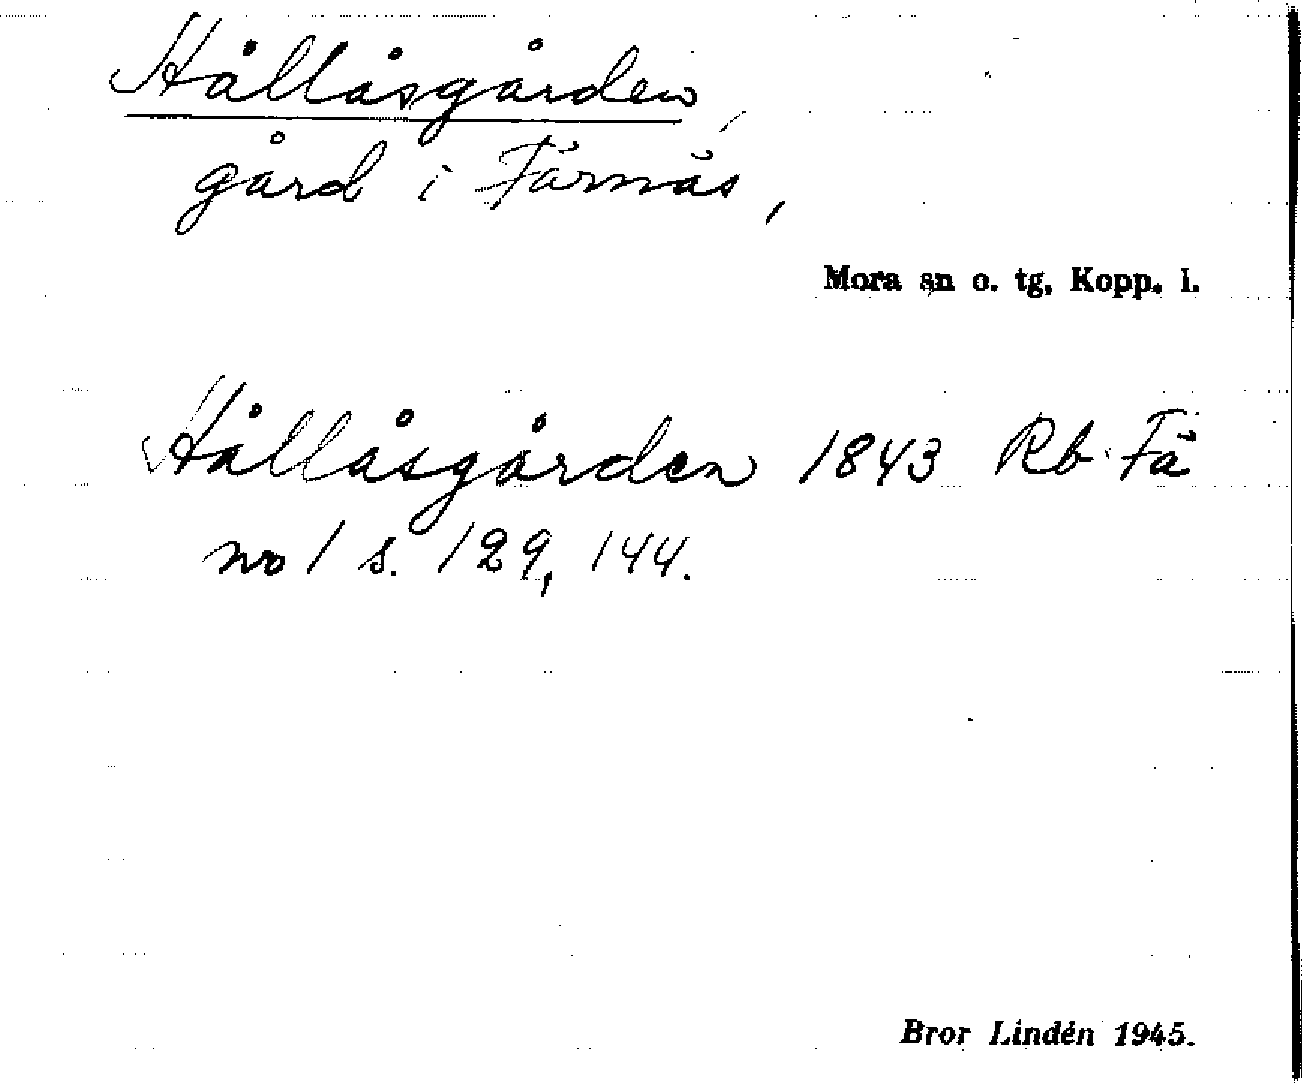 Hållåsgården,
gård i Färnäs,
Mora sn o. tg, Kopp. l.
Hållåsgården 1843 Rb. Fä
no 1 s. 129, 144.
Bror Lindén 1945.